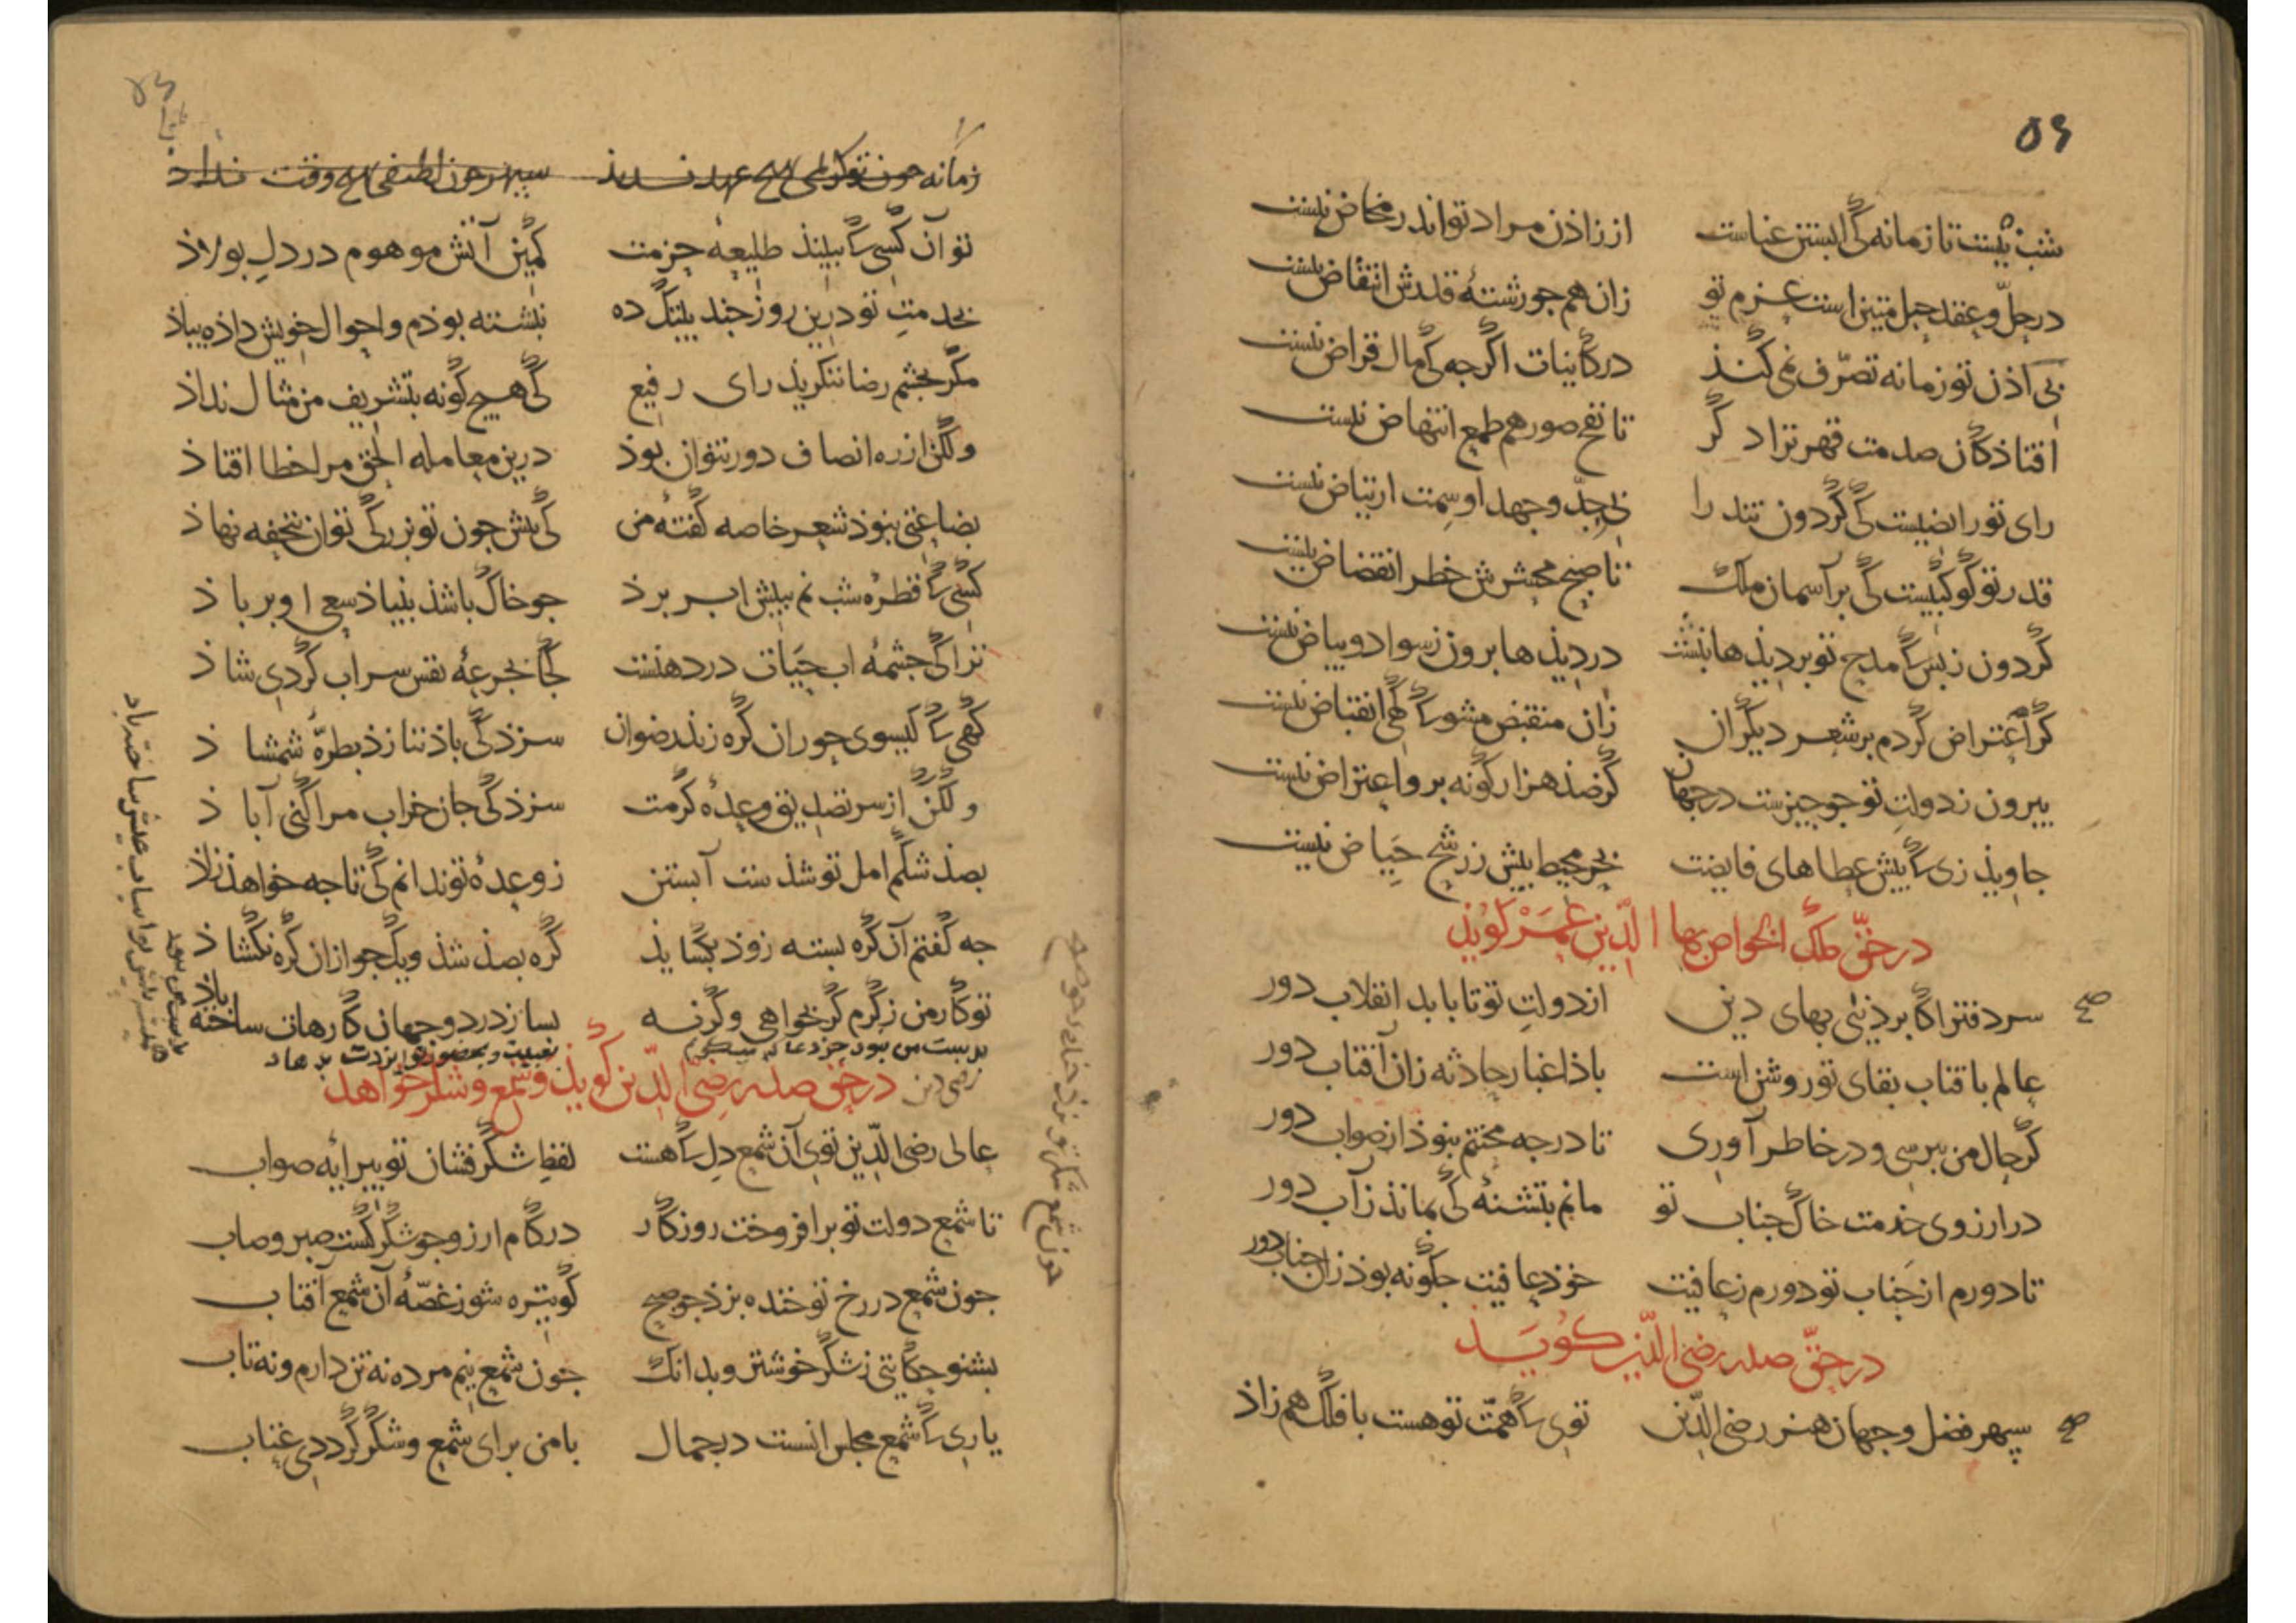 ۵۶
شب نیست تا زمانه کی ابستن عناست از زاذن مراد تو اندر مخاض نیست
در حلّ و عقد حبل متین است عزم تو زان هم جو رشتۀ قلدش انتقاض نیست
بی اذن تو زمانه تصرّف نمی کند در کاینات اکرجه کی مال قراض نیست
افتاذکان صدمت قهر ترا دکر تا نفخ صور هم طمع انتهاض نیست
رای تو رایضیست کی کردون تند را بی جدّ و جهد او سمت ارتیاض نیست
قدر تو کوکبیست کی بر آسمان ملک تا صبح محشرش خطر انقضاض نیست
کردون ز بس کا مدح تو بر دیذها نبشت در دیذها برون ز سواد و بیاض نیست
کر اعتراض کردم بر شعر دیکران زان منقبض مشو کا کهی انقباض نیست
بیرون ز دولت تو جو جیزست در جهان کز صد هزار کونه برو اعتراض نیست
جاویذ زی کا پیش عطاهای فایضت بحر محیط بیش ز رشح حیاض نیست
در حقّ ملک الخواص بها الدّین عمر کوید
صح
سر دفتر اکابر دنیی بهای دین از دولت تو تا بابد انقلاب دور
عالم بافتاب بقای تو روشن است باذا غبار حادثه زان آفتاب دور
کر حال من ببرسی و در خاطر آوری تا درجه مختم بنوذ از صواب دور
در ارزوی خدمت خاک جناب تو مانم بتشنۀ کی بماند ز آب دور
تا دورم از جناب تو دورم ز عافیت خوذ عافیت جکونه بوذ زان جناب دور
در حقّ صدر رضی الدّین کوید
صح
سپهر فضل و جهان هنر رضی الدّین توی کا همّت تو هست با فلک هم زاذ
زمانه جون تو کریمی بهیچ عهد ندید سپهر جون لطفی بهیچ وقت نداد
تو آن کسی کا ببیند طلیعۀ حزمت کمین آتش موهوم در دل بولاذ
بخدمت تو درین روز جند بیتک ده نبشته بوذم و احوال خویش داذه بیاذ
مکر بجشم رضا ننکرید رای رفیع کی هیج کونه بتشریف من مثال نداذ
ولکن از ره انصاف دور نتوان بوذ درین معامله الحق مرا خطا افتاذ
بضاعتی بنوذ شعر خاصه کفتۀ من کی بیش جون تو بزرکی توان تحفه نهاذ
کسی کا قطرۀ شب نم ببیش ابر برذ جو خاک باشد بنیاذ سعی او بر باذ
ترا کی جشمۀ اب حیات در دهنست کجا بجرعۀ نقس سراب کردی شاذ
کهی کا کیسوی حوران کره زند رضوان سزد کی باذ نتازذ بطرّۀ شمشاذ
ولکن از سر تصدیق وعدۀ کرمت سزذ کی جان خراب مرا کنی آباذ
بصذ شکم امل تو شذست آبستن ز وعدۀ تو ندانم کی تا جه خواهذ زاذ
جه کفتم آن کره بسته زوذ بکشایذ کره بصذ شذ و یک جو ازان کره نکشاذ
تو کار من ز کرم کر بخواهی و کرنه بسازد در دو جهان کارهات ساخته باذ
بدست من نبود جز دعا که میکویم
رضی دین
در حقّ صدر رضی الدّین کوید و شمع و شکر خواهد
عالی رضی الدّین توی آن شمع دل کا هست لفظ شکر فشان تو پیرایه صواب
تا شمع دولت تو برافروخت روزکار در کام ارزو جو شکر کشت صبر و صاب
جون شمع در رخ تو خنده بزذ جو صبح کو تیره شو ز غصّۀ آن شمع آفتاب
بشنو حکایتی ز شکر خوشتر و بدانک جون شمع نیم مرده نه تن دارم و نه تاب
یاری کا شمع مجلس انست در جمال با من برای شمع و شکر کرد دی عتاب